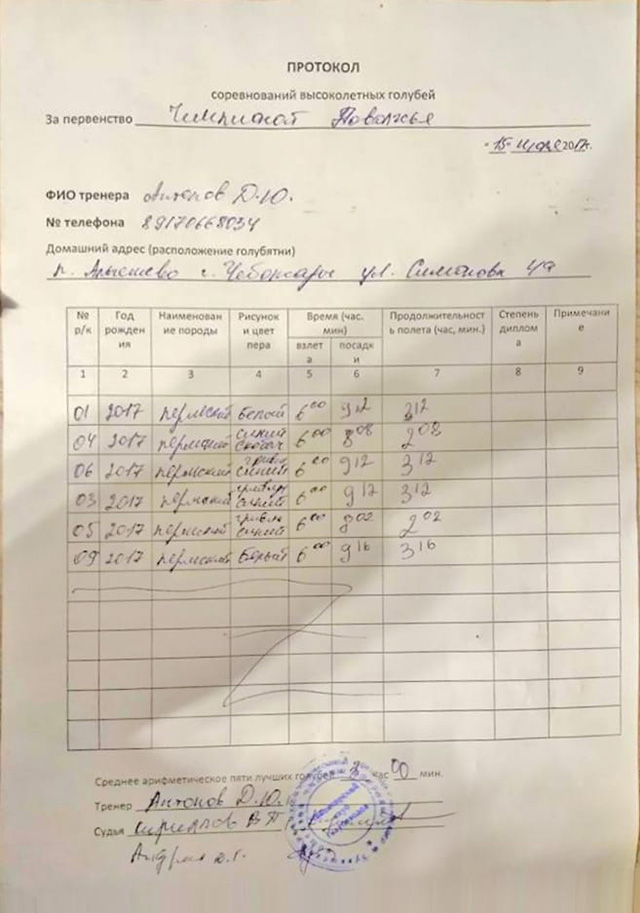 ПРОТОКОЛ
соревнований высоколетных голубей
За первенство Чемпионат Поволжья
"15" 2017г.
ФИО тренера Антонов Д.Ю.
№ телефона 89170668034
Домашний адрес (расположение голубятни)
п. Альгешево г. Чебоксары ул. Симонова 4а
№ р/к Год рождения Наименование породы Рисунок и цвет пера Время (час. мин) взлета посадки Продолжительность полета (час, мин.) Степень диплома Примечание
1 2 3 4 5 6 7 8 9
01 2017 пермский белый 6 00 9 12 3 12
04 2017 пермский синий 6 00 8 08 2 08
06 2017 пермский синий 6 00 9 12 3 12
03 2017 пермский синий 6 00 9 12 3 12
05 2017 пермский синий 6 00 8 02 2 02
09 2017 пермский белый 6 00 9 16 3 16
Среднее арифметическое пяти лучших голубей 3 час 00 мин.
Тренер Антонов Д.Ю.
Судья В П
Д.Г.